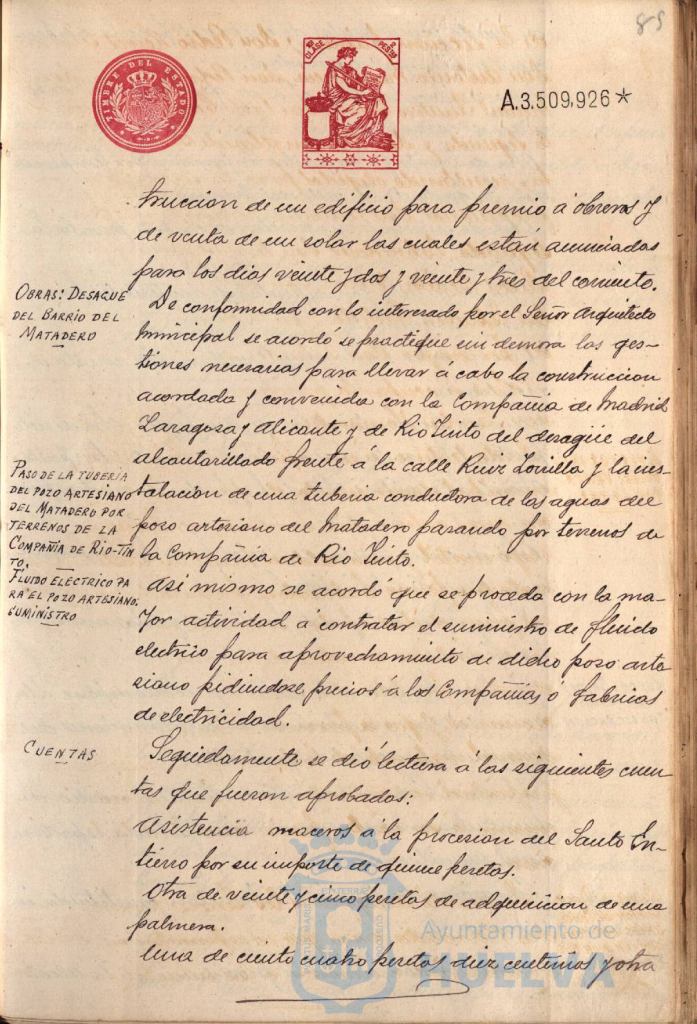 85
TIMBRE DEL ESTADO
CLASE
PESETA
A.3.509.926*
truccion de un edificio para premio á obreros y
de venta de un solar las cuales están anunciadas
para los dias veinte y dos y veinte y tres del corriente.
OBRAS: DESAGUE
DEL BARRIO DEL
MATADERO
De conformidad con lo interesado por el Señor Arquitecto
Municipal se acordó se practique sin demora las ges-
tiones necesarias para llevar á cabo la construccion
acordada y convenida con la Compañia de Madrid
Zaragoza y Alicante y de Rio Tinto del desagüe del
alcantarillado frente á la calle Ruiz Zorrilla y la ins-
talación de una tuberia conductora de las aguas del
poso artesiano del Matadero pasando por terrenos de
la Compañia de Rio Tinto.
PASO DE LA TUBERÍA
DEL POZO ARTESIANO
DEL MATADERO POR
TERRENOS DE LA
COMPAÑÍA DE RIO-TIN-
TO.
FLUIDO ELÉCTRICO PA
RA EL POZO ARTESIANO:
SUMINISTRO
Asi mismo se acordó que se proceda con la ma-
yor actividad á contratar el suministro de fluido
electrico para aprovechamiento de dicho poso arte
siano pidiendose precios á las Compañias ó fabricas
de electricidad.
CUENTAS
Seguidamente se dió lectura á las siguientes cuen
tas que fueron aprobadas:
Asistencia maceros á la procesion del Santo En-
tierro por su importe de quince pesetas.
Otra de veinte y cinco pesetas de adquisicion de una
palmera.
Una de ciento cuatro pesetas diez centimos y otra
Ayuntamiento de
HUELVA